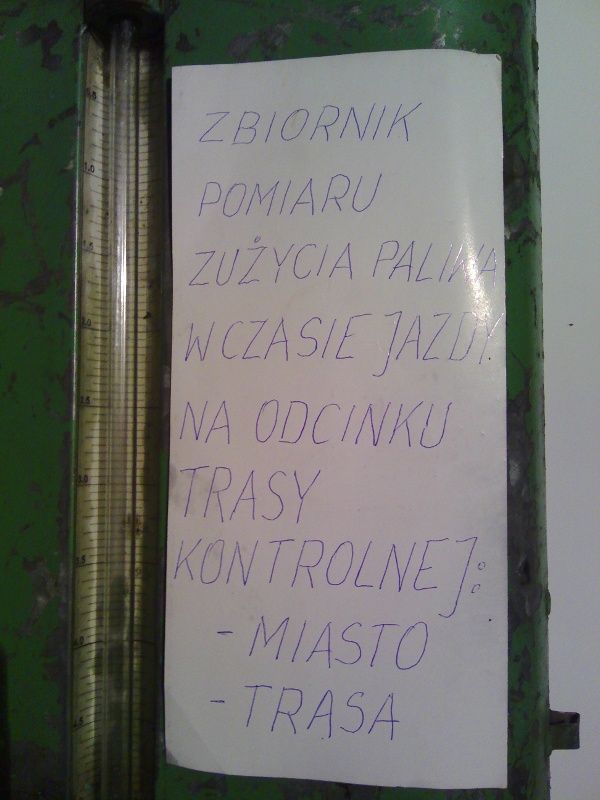 ZBIORNIK
POMIARU
ZUŻYCIA PALIWA
W CZASIE JAZDY
NA ODCINKU
TRASY
KONTROLNEJ:
- MIASTO
- TRASA